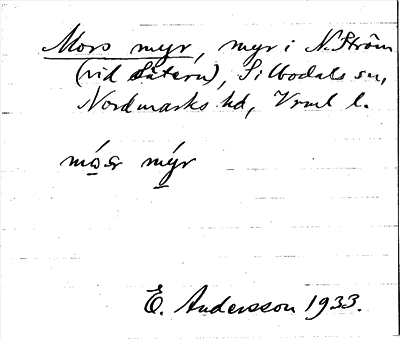 Mors myr, myr i N. Ström
(vid Sätern), Silbodals sn,
Nordmarks hd, Vrml l.
mýr
E. Andersson 1933.